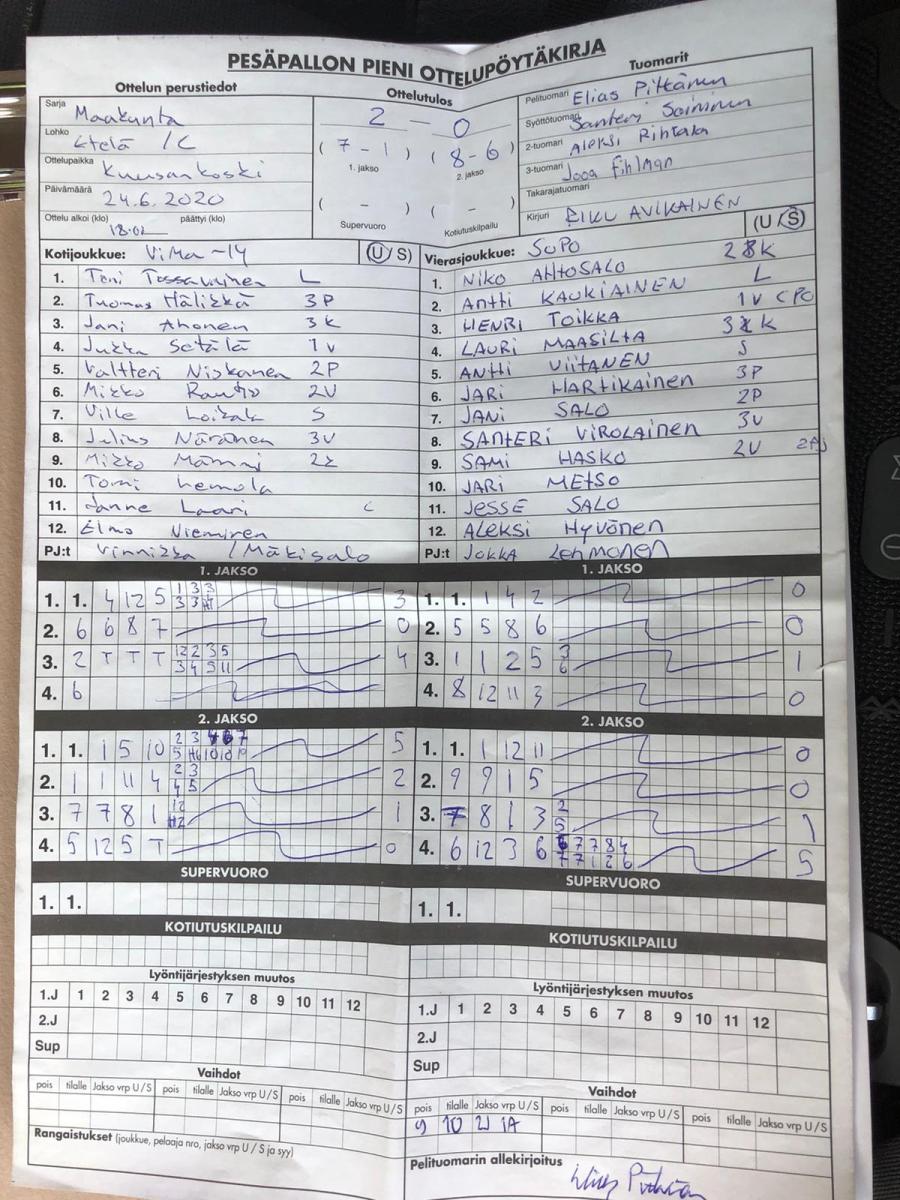 PESÄPALLON PIENI OTTELUPÖYTÄKIRJA
Ottelun perustiedot
Ottelutulos
Tuomarit
Sarja Maakunta
Lohko Etelä /C
Ottelupaikka Kuusankoski
Päivämäärä 24.6.2020
Ottelu alkoi (klo) päättyi (klo)
18.02
2 - 0
( 7 - 1 ) ( 8 - 6 )
1. jakso 2. jakso
( - ) ( - )
Supervuoro Kotiutuskilpailu
Pelituomari Elias Pitkänen
Syöttötuomari Santeri Soininen
2-tuomari Aleksi Rihtala
3-tuomari Jooa Fihlman
Takarajatuomari
Kirjuri RIKU AVIKAINEN
Kotijoukkue: ViMa -14 (U/S)
1. Toni Tossavainen L
2. Tuomas Hälikkä 3P
3. Jani Ahonen 3K
4. Jukka Setälä 1V
5. Valtteri Niskanen 2P
6. Mikko Rautio 2V
7. Ville S
8. Julius Näränen 3V
9. Mikko Mämmi 2K
10. Tomi Lemola
11. Janne Laari C
12. Elmo Nieminen
PJ:t Vinnikka / Mäkisalo
Vierasjoukkue: SuPo (U/S)
1. NIKO AHTOSALO K
2. Antti KAUKIAINEN L
3. HENRI TOIKKA 1V CPC
4. LAURI MAASILTA K
5. ANTTI VIITANEN S
6. JARI HARTIKAINEN 3P
7. JANI SALO 2P
8. SANTERI VIROLAINEN 3V
9. SAMI HASKO 2V
10. JARI METSO
11. JESSE SALO
12. ALEKSI HYVÖNEN
PJ:t JUKKA Lehmonen
1. JAKSO
1. 1. 4 12 5 3
2. 6 6 8 7 0
3. 2 T T T 12 2 3 5 4
3 4 5 11
4. 6
1. JAKSO
1. 1. 1 4 2 0
2. 5 5 8 6 0
3. 1 1 2 5 3 1
6
4. 8 12 11 3 0
2. JAKSO
1. 1. 1 5 10 5
2. 1 1 11 4 2 3 2
4 5
3. 7 7 8 1 12 1
H2
4. 5 12 5 T 0
2. JAKSO
1. 1. 1 12 11 0
2. 9 9 1 5 0
3. 7 8 1 3 2 1
5
4. 6 12 3 6 6 7 7 8 4 5
7 7 1 2 6
SUPERVUORO
1. 1.
SUPERVUORO
1. 1.
KOTIUTUSKILPAILU
KOTIUTUSKILPAILU
Lyöntijärjestyksen muutos
1.J 1 2 3 4 5 6 7 8 9 10 11 12
2.J
Sup
Lyöntijärjestyksen muutos
1.J 1 2 3 4 5 6 7 8 9 10 11 12
2.J
Sup
Vaihdot
pois tilalle Jakso vrp U/S pois tilalle Jakso vrp U/S pois tilalle Jakso vrp U/S
Vaihdot
pois tilalle Jakso vrp U/S pois tilalle Jakso vrp U/S pois tilalle Jakso vrp U/S
9 10 2J 1A
Rangaistukset (joukkue, pelaaja nro, jakso vrp U / S ja syy)
Pelituomarin allekirjoitus